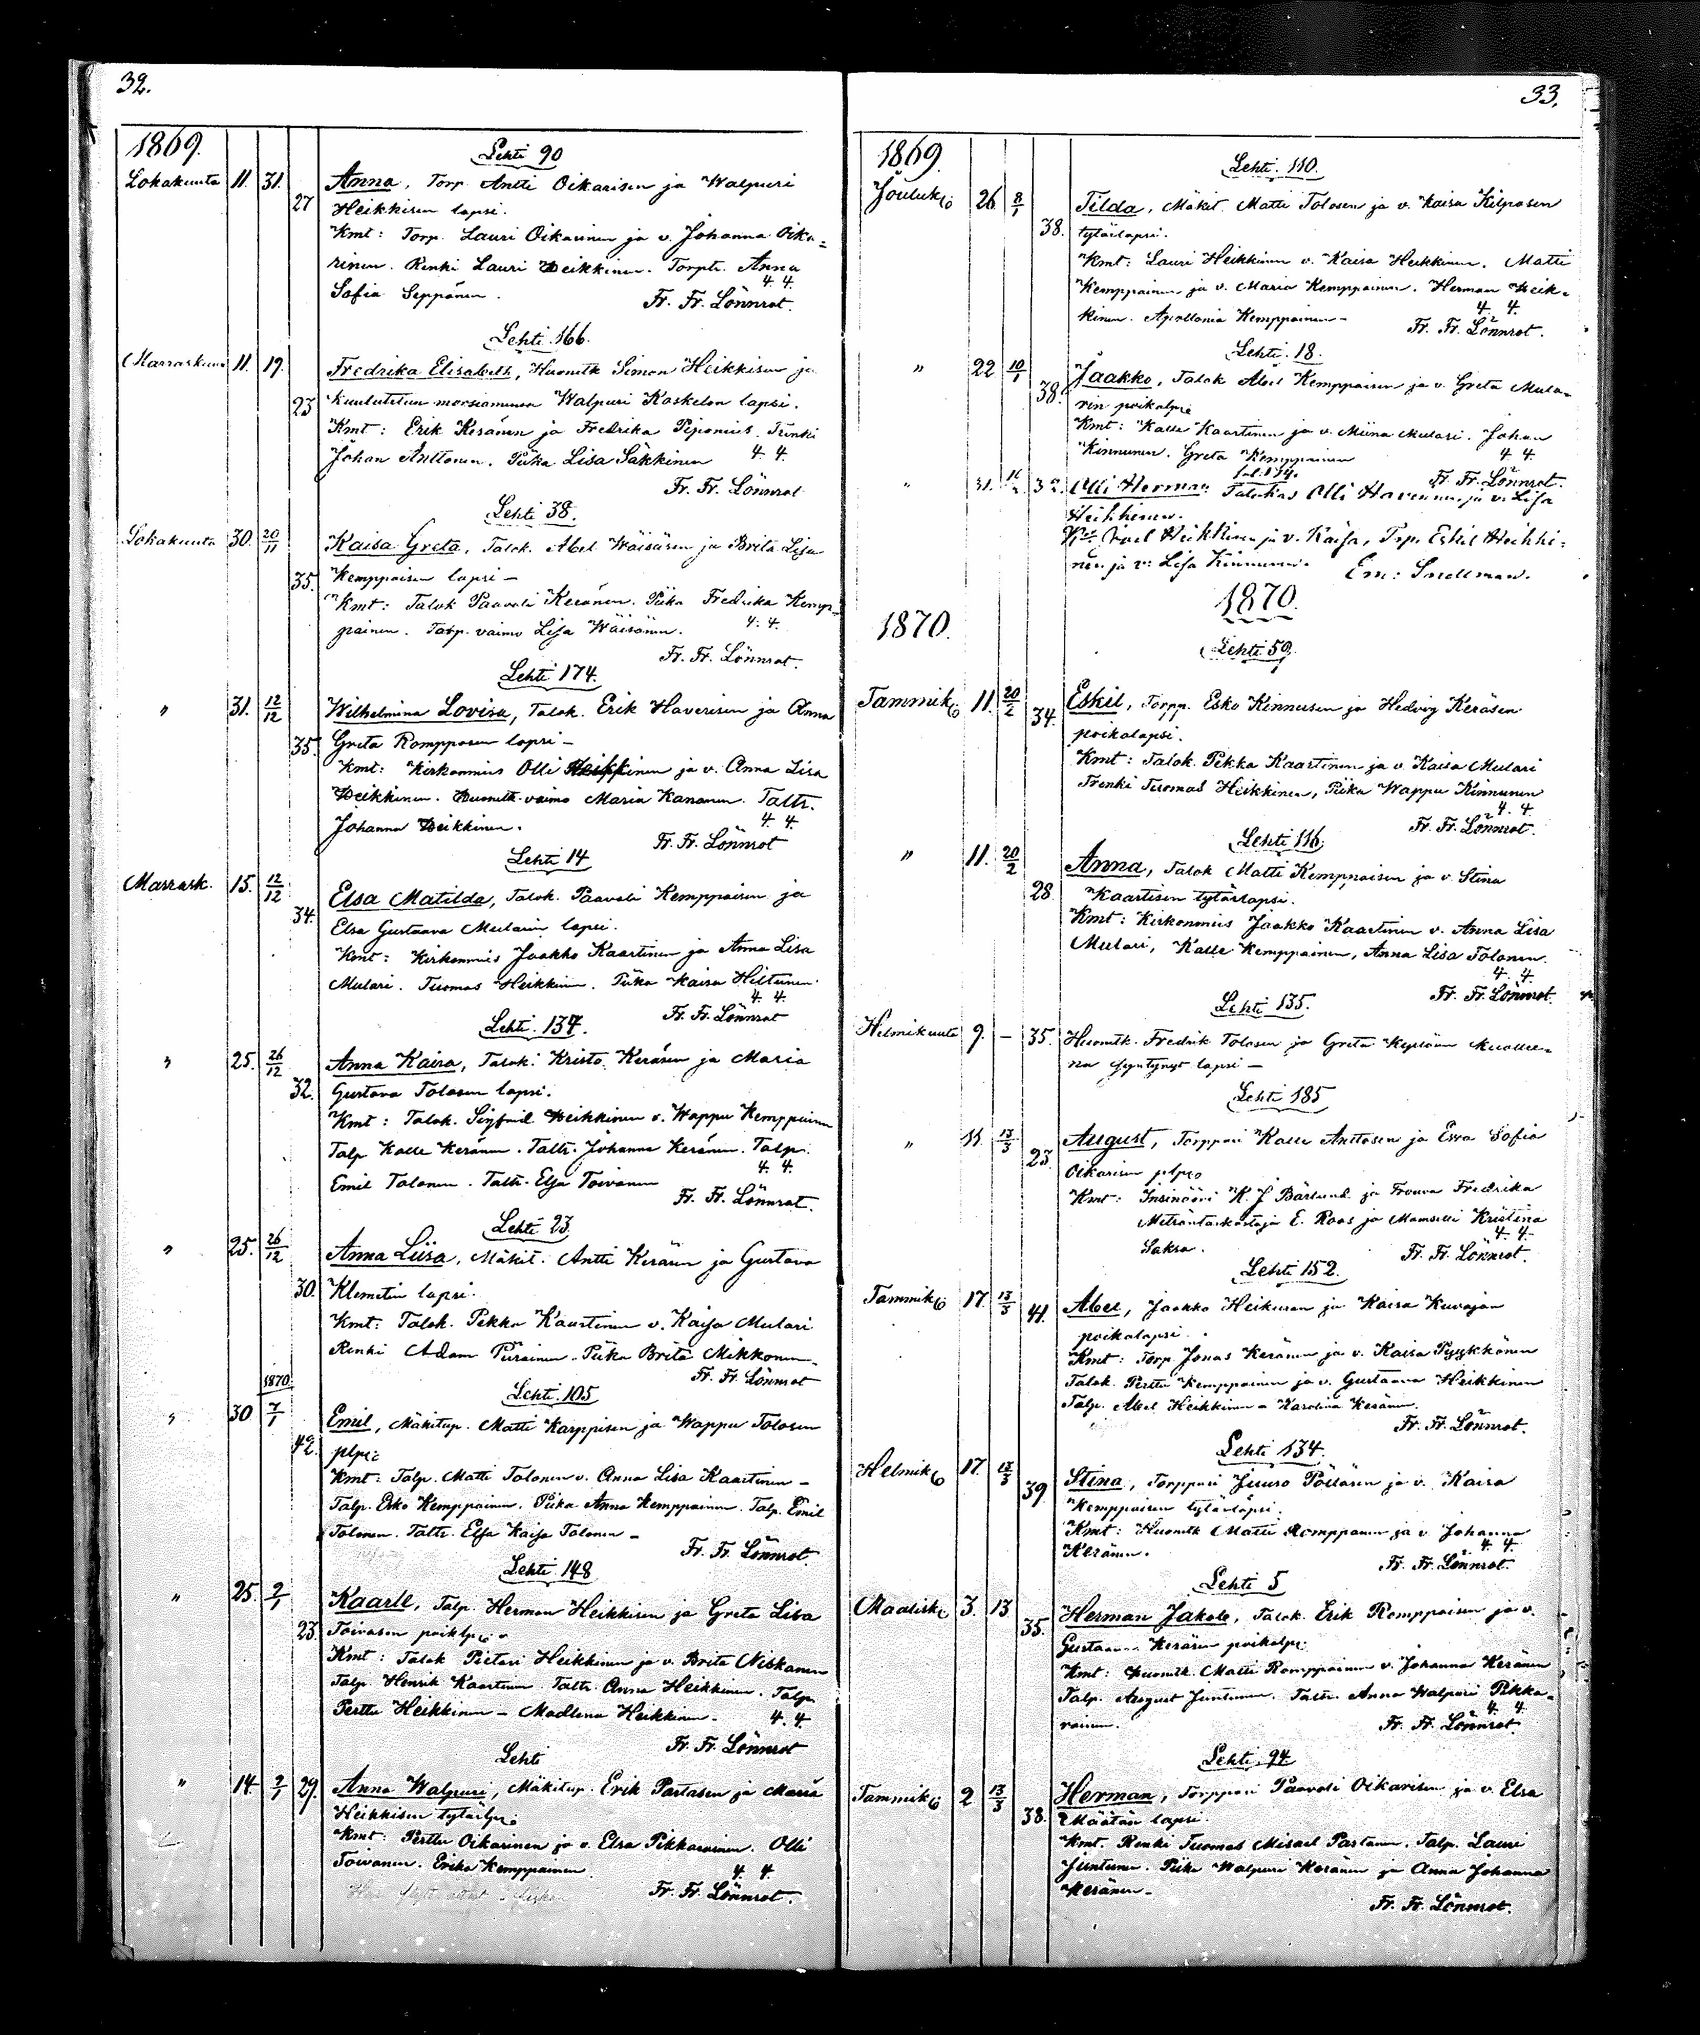 32.
1869.
Lehti 90
Lokakuuta 11. 31. Anna, Torp. Antti Oikarisen ja Walpuri
27 Heikkisen lapsi.
Kmt: Torp. Lauri Oikarinen ja v. Johanna Oika=
rinen. Renki Lauri Heikkinen. Torptr. Anna
Sofia Seppänen.
4. 4.
Fr. Fr. Lönnrot.
Lehti 166.
Marraskuu 11. 19. Fredrika Elisabeth, Huonetk Simon Heikkisen ja
23 kuulutetun morsiamensa Walpuri Koskelon lapsi.
Kmt: Erik Keränen ja Fredrika Piponius. Trenki
Johan Anttonen. Piika Lisa Säkkinen
4. 4.
Fr. Fr. Lönnrot
Lehti 38.
Lokakuuta 30. 20/11 Kaisa Greta, Talok. Abel Wäisäsen ja Brita Lisa
35. Kemppaisen lapsi –
Kmt: Talok Paavali Keränen. Piika Fredrika Kemp=
painen. Talp. vaimo Lisa Wäisänen.
4. 4.
Fr. Fr. Lönnrot.
Lehti 174.
" 31. 12/12 Wilhelmina Lovisa, Talok. Erik Haverisen ja Anna
35. Greta Romppasen lapsi –
Kmt: Kirkonmies Olli Heikkinen ja v. Anna Lisa
Heikkinen. Huonetk. vaimo Maria Kananen. Taltr.
Johanna Heikkinen.
4. 4.
Fr. Fr. Lönnrot
Lehti 14
Marrask. 15. 12/12 Elsa Matilda, Talok. Paavali Kemppaisen ja
34. Elsa Gustaava Mularin lapsi.
Kmt: Kirkonmies Jaakko Kaartinen ja Anna Lisa
Mulari. Tuomas Heikkinen. Piika Kaisa Hiltunen.
4. 4.
Fr. Fr. Lönnrot
Lehti. 137.
" 25. 26/12 Anna Kaisa, Talok. Kristo. Keräsen ja Maria
32. Gustava Tolosen lapsi.
Kmt: Talok. Sigfrid Heikkinen v. Wappu Kemppainen
Talp Kalle Keränen. Taltr. Johanna Keränen. Talp.
Emil Tolonen. Taltr. Elsa Toivonen
4. 4.
Fr. Fr. Lönnrot.
Lehti 23
" 25. 26/12 Anna Liisa, Mäkit. Antti Keräsen ja Gustava
30. Klemetin lapsi.
Kmt: Talok. Pekka Kaartinen v. Kaisa Mulari
Renki Adam Piirainen. Piika Brita Mikkonen.
Fr. Fr. Lönnrot
1870
Lehti 105
" 30 7/1 Emil, Mäkitup. Matti Karppisen ja Wappu Tolosen
42. plpi:
Kmt: Talp. Matti Tolonen v. Anna Lisa Kaartinen –
Talp. Esko Kemppainen. Piika Anna Kemppainen. Talp. Emil
Tolonen. Taltr. Elsa Kaisa Tolonen –
Fr. Fr. Lönnrot
Lehti 148
" 25. 2/1 Kaarle, Talp. Herman Heikkisen ja Greta Lisa
23. Toivasen poiklpsi
Kmt: Talok Pietari Heikkinen ja v. Brita Niskanen
Talp. Henrik Kaartinen. Taltr. Anna Heikkinen. Talp.
Perttu Heikkinen – Madlena Heikkinen.
4. 4.
Fr. Fr. Lönnrot
Lehti
" 14. 2/1 29. Anna Walpuri, Mäkitup. Erik Partasen ja Maria
Heikkisen tytärlps:
Kmt: Perttu Oikarinen ja v. Elsa Pikkarainen. Olli
Toivanen. Erika Kemppainen
4. 4.
Fr. Fr. Lönnrot.
33.
1869.
Lehti. 110.
Jouluk. 26 8/1 Tilda, Mäkit. Matti Tolosen ja v. Kaisa Kilposen
38. tytärlapsi.
Kmt: Lauri Heikkinen v. Kaisa Heikkinen. Matti
Kemppainen ja v. Maria Kemppainen. Herman Heik=
kinen. Apollonia Kemppainen –
4. 4.
Fr. Fr. Lönnrot.
Lehti. 18.
" 22 10/1 Jaakko, Talok Abel Kemppaisen ja v. Greta Mula=
38. rin poikalps:
Kmt: Kalle Kaartinen ja v. Miina Mulari. Johan
Kinnunen. Greta Kemppainen
4. 4.
Fr. Fr. Lönnrot.
fol. 174.
" 31. 32. Olli Herman Talokas Olli Haverinen ja v. Lisa
Heikkinen.
Abel Heikkinen ja v. Kaisa, Torp. Eskil Heikki=
nen ja v: Lisa Kinnunen.
Em: Snellman.
1870.
1870.
Lehti 59.
Tammik. 11. 20/2 Eskil, Torpp. Esko Kinnusen ja Hedvig Keräsen
34. poikalapsi.
Kmt: Talok. Pekka Kaartinen ja v. Kaisa Mulari
Trenki Tuomas Heikkinen, Piika Wappu Kinnunen
4. 4.
Fr. Fr. Lönnrot.
Lehti 116.
" 11. 20/2 Anna, Talok Matti Kemppaisen ja v. Stina
28. Kaartisen tytärlapsi.
Kmt: Kirkonmies Jaakko Kaartinen v. Anna Lisa
Mulari, Kalle Kemppainen, Anna Lisa Tolonen.
4. 4.
Fr. Fr. Lönnrot.
Lehti 135.
Helmikuuta 9. – 35. Huonetk. Fredrik Tolosen ja Greta Keräsen kuollee=
na syntynyt lapsi –
Lehti 185
" 11. 13/3 August, Torppari Kalle Anttosen ja Eeva Sofia
23. Oikarisen plps
Kmt: Insinööri K. J Bärlund ja Frouva Fredrika
Metsäntarkastaja E. Roos ja Mamselli Kristina
Saksa.
4. 4.
Fr. Fr. Lönnrot.
Lehti 152.
Tammik. 17. 13/3 41. Abel, Jaakko Heikuran ja Kaisa Kuvajan
poikalapsi.
Kmt: Torp. Jonas Keränen ja v. Kaisa Pyykkönen
Talok. Perttu Kemppainen ja v. Gustaava Heikkinen
Talp. Abel Heikkinen – Karolina Keränen.
Fr. Fr. Lönnrot.
Lehti 134.
Helmik. 17. 13/3 Stina, Torppari Juuso Pölläsen ja v. Kaisa
39 Kemppaisen tytärlapsi.
Kmt: Huonetk Matti Romppanen ja v. Johanna
Keränen.
4. 4.
Fr. Fr. Lönnrot.
Lehti 5
Maalisk. 3. 13 Herman Jakob, Talok. Erik Romppaisen ja v.
35. Gustaava Keräsen poikalps:
Kmt: Huonetk. Matti Romppainen v. Johanna Keränen
Talp. August Juntunen. Taltr. Anna Walpuri Pikka=
rainen.
4. 4.
Fr. Fr. Lönnrot.
Lehti. 94
Tammik. 2 13/3 Herman, Torppari Paavali Oikarisen ja v. Elsa
38. Määtän lapsi.
Kmt. Renki Tuomas Misael Partanen. Talp. Lauri
Juntunen. Piika Walpuri Keränen ja Anna Johanna
Keränen –
Fr. Fr. Lönnrot.